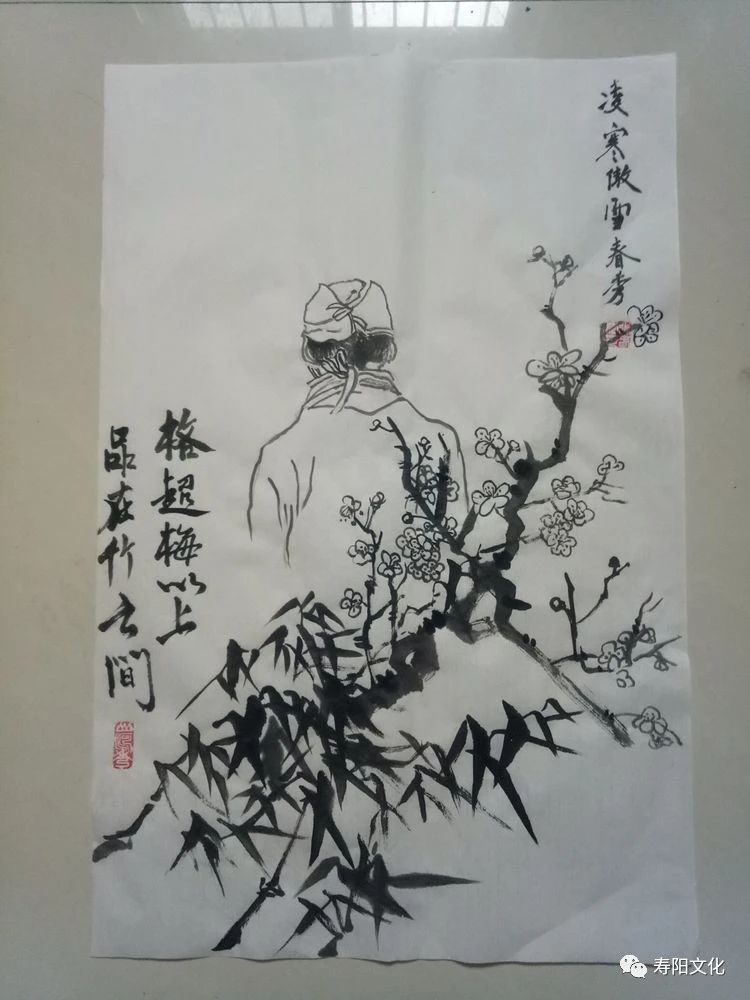 凌寒傲雪春秀
格超梅以上
品在竹之間
寿阳文化